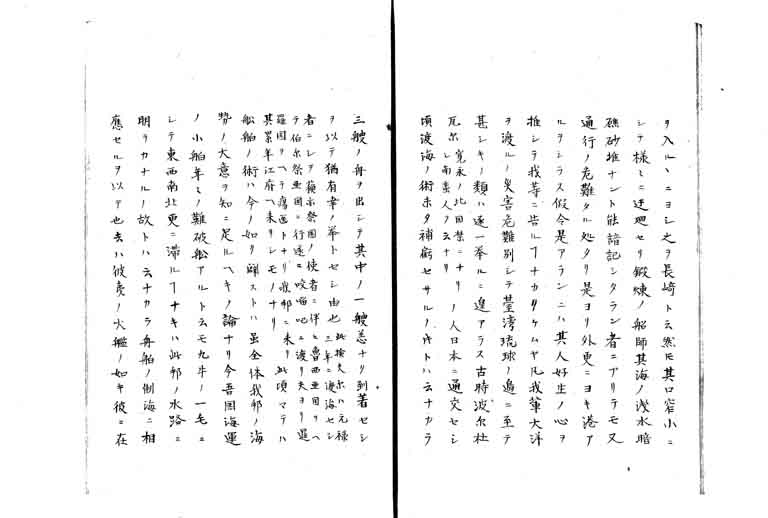 ヲ入ルヽニヨシ之ヲ長崎ト云然𪜈其口窄小ニ
シテ様ミニ迂廻セリ鍛煉ノ船師其海ノ浅水暗
礁砂堆ナント能諳記シタラン者ニアリテモ又
通行ノ危難タル処タリ是ヨリ外更ニヨキ港ア
ルヲシラス假令是アランニハ其人好生ノ心ヲ
推シテ我等ニ告ルヿナカタケムヤ凡我輩大洋
ヲ渡ルノ災害危難別シテ臺湾琉球ノ邉ニ至テ
甚シキノ類ハ逐一挙ルニ遑アラス古時波尔杜
瓦尓 寛永ノ比国禁ニナリシ南蛮人ヲ云ナリ ノ人日本ニ通交セシ
頃渡海ノ術ホタ補虧セサルノ時トハ云ナカラ
三艘ノ舟ヲ出シテ其中ノ一艘恙ナリ到著セシ
ヲ以テ猶有幸ノ挙トセシ由也 此検夫尓ハ元禄三年ニ渡海セシ
者ニシテ蘓亦祭国ノ使者ニ伴ヒ魯西亜国リヘ
テ伯尓祭亜国ニ行遂ニ咬𠺕吧ニ渡リ夫ヨリ暹
羅国ヲヘテ當画トナリ我邦ニ来リ此頃マテハ
其累年江府ヘ来リシモノナリ
舩舶ノ術ハ今ノ如ク鮮ストハ虽全体我邦ノ海
勢ノ大意ヲ知ニ足ルヘキノ論ナリ今吾国海運
ノ小舶年ミノ難破舩アルト云モ九牛ノ一毛ニ
シテ東西南北更ニ滞ルヿナキハ此邦ノ水路ニ
明ラカナルノ故トハ云ナカラ舟舶ノ制海ニ相
應セルヲ以テ也去ハ彼夷ノ大艦ノ如キ彼ニ在